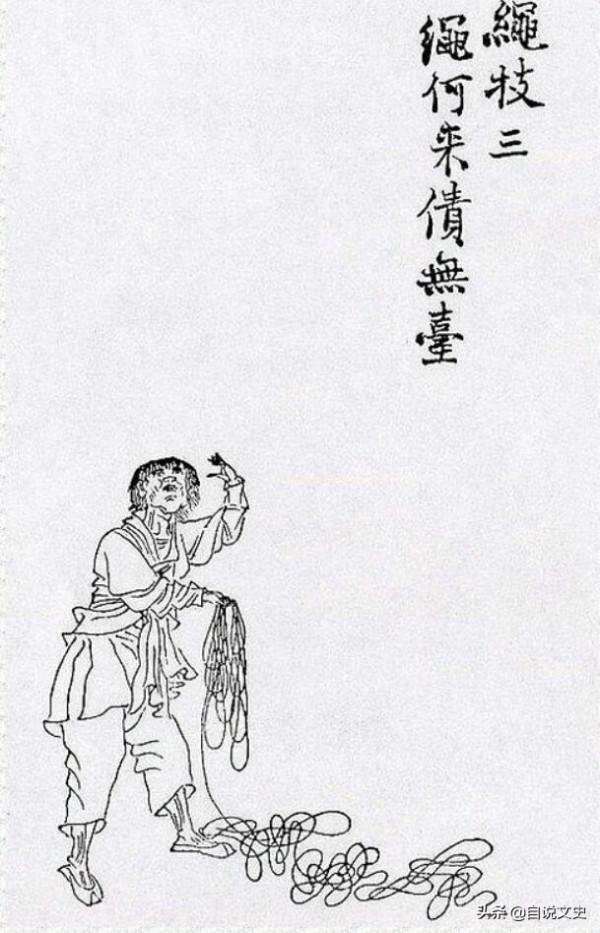 繩技三
繩何来債無臺
头条 @自说文史